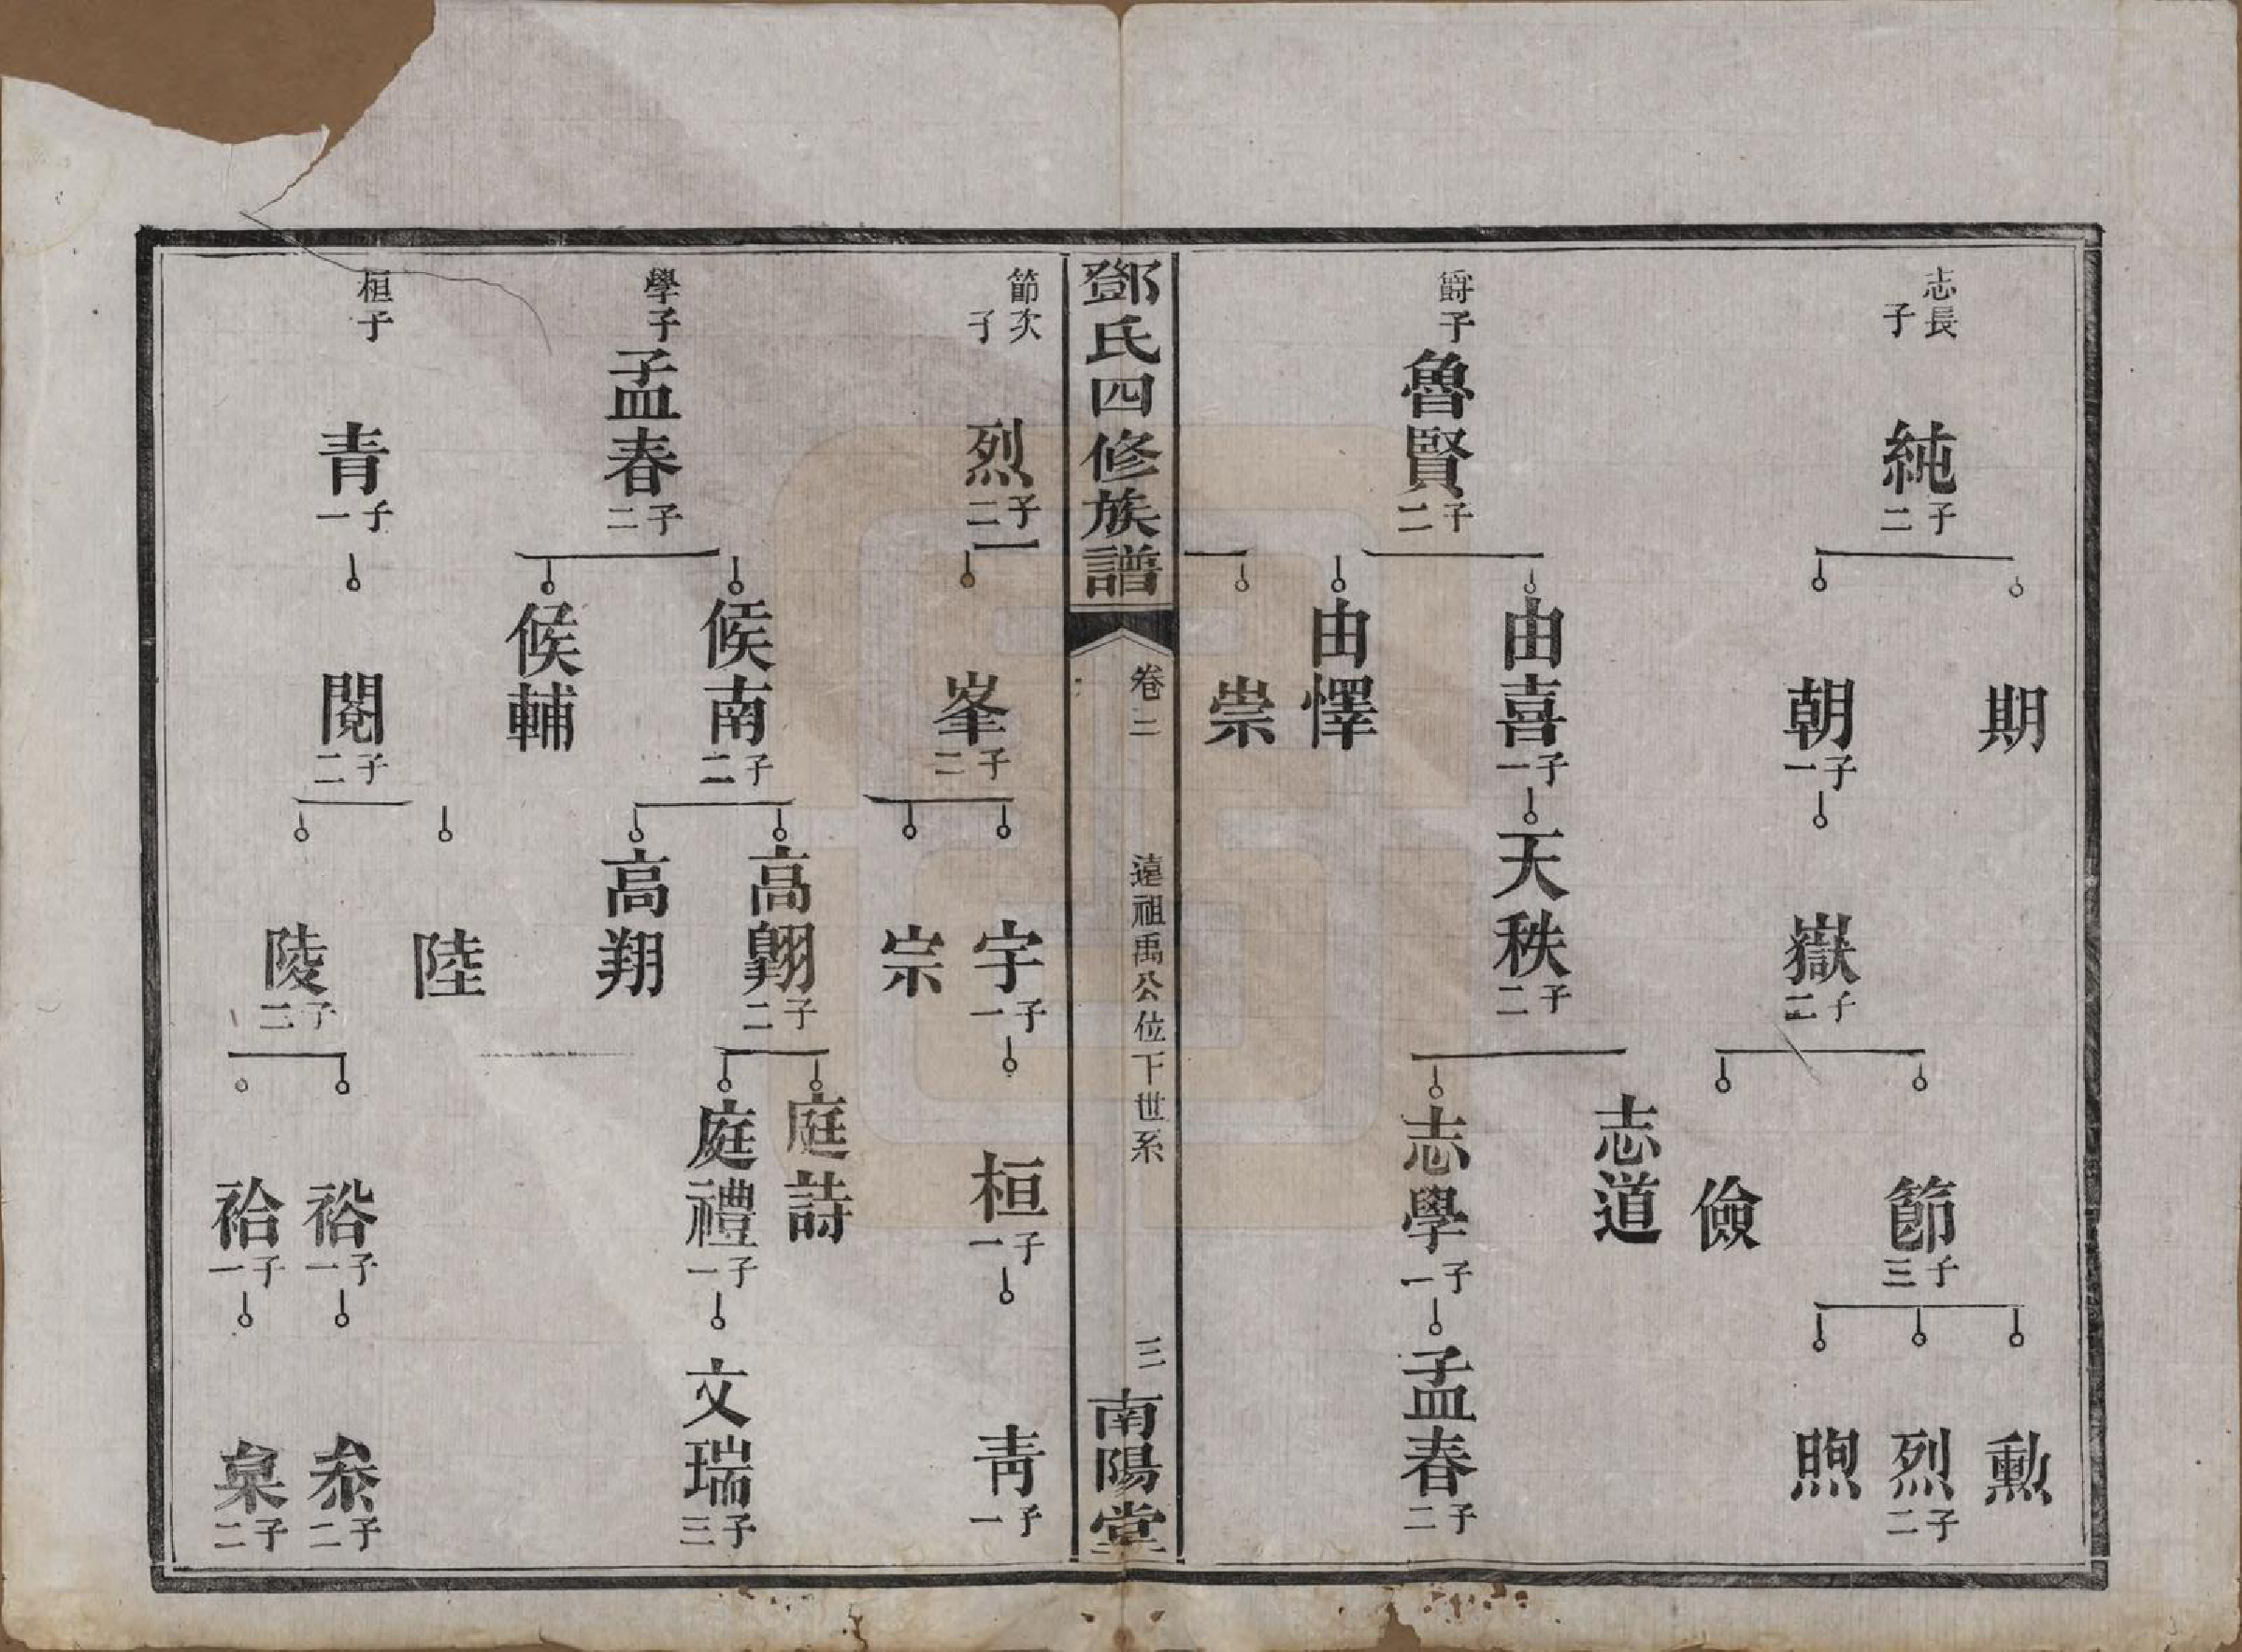 志長子
純 子二
期
朝 子一
嶽 子二
節 子三
儉
勳
烈 子二
煦
爵子
魯賢 子二
由喜 子一
由懌
天秩 子二
志道
志學 子一
孟春 子二
崇
鄧氏四修族譜
卷二
遠祖禹公位下世系
三
南陽堂
節次子
烈 子二
峯 子二
宇 子一
宗
桓 子一
靑 子一
學子
孟春 子二
候南 子二
候輔
高翶 子二
高翔
庭詩
庭禮 子一
文瑞 子三
桓子
青 子一
閱 子二
陸
陵 子二
裕 子一
袷 子一
叅 子二
皋 子二